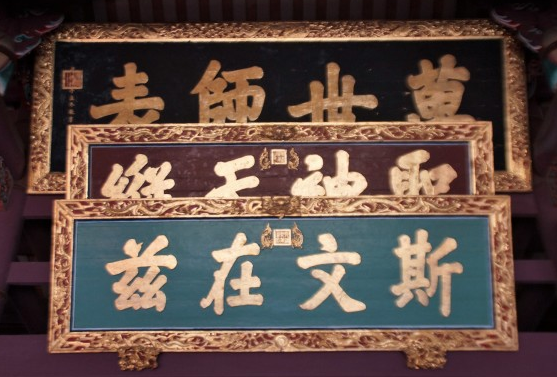 萬世師表
聖神天縱
斯文在茲